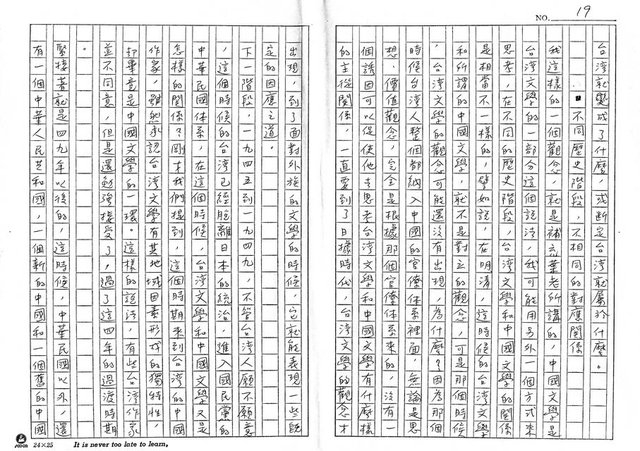 NO. 19
台灣就變成了什麼，或斷定台灣就屬於什麼。
■不同歷史階段，不相同的對應關係
我這樣的一個觀念，就是補充葉老所講的，把
台灣文學的一部合這個說法，我可能用另外一個方式來
思考，在不同的歷史階段，台灣文學和中國文學的關係
是相當不一樣的，譬如說，在明清，這時候的台灣文學
和所謂的中國文學，就不是對立的觀念，可是那個時候
台灣文學的觀念可能還沒有出現，為什麼？因為那個
時候台灣人整個都納入中國的官僚體系裡面，無論是思
想、價值觀念，完全是根據那個官僚體系來的，沒有一
個誘因可以促使他去思考台灣文學和中國文學有什麼樣
的主從關係，一直要到了日據時代，台灣文學的觀念才
出現，到了面對外族的文學時候，它就能表現一些既
定的因應之道。
下一階段，一九四五到一九四九，不管台灣人願不願意
，這個時候的台灣已經脫離日本的統治，進入國民黨的
中華民國體系，在這個時候，台灣文學和中國文學又是
怎樣的關係？剛才我們提到，這個時期來到台灣的中國
作家，雖然承認台灣文學有其地域因素形成的獨特性，
却畢竟是中國文學的一環。這樣的說法，有些台灣作家
並不同意，但是還勉強接受了，過了這四年的過渡時期
。
緊接著就是四九年以後的，這時候，中華民國以外，還
有一個中華人民共和國，一個新的中國和一個舊的中國
24×25
It is never too late to learn,